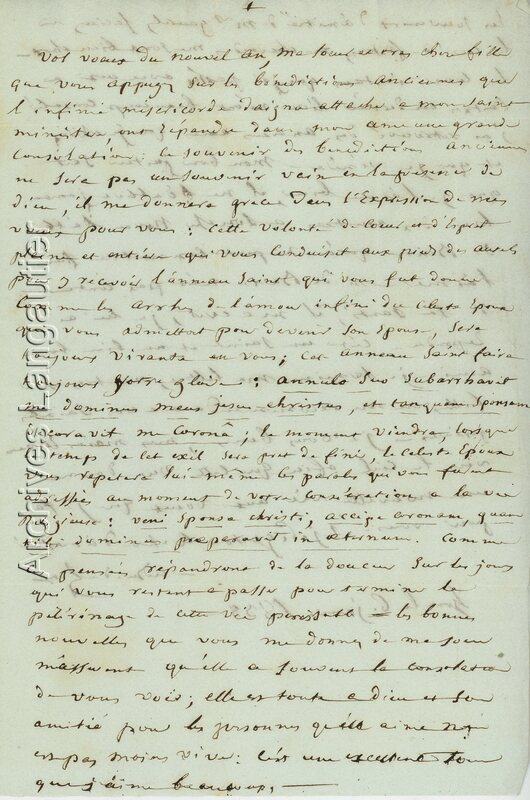 +
vos voeux du nouvel an, ma soeur et tres cher fille
que vous appuyez sur les benedictions anciennes que
l infinie misericorde daigna attacher a mon saint
ministere, ont repandre dans mon ame une grande
consolation; le souvenir des benediction anciennes
ne sera pas un souvenir vain en la presence de
dieu, il me donnera grace dans l'Expression de mes
voeux pour vous; cette volonté de coeur et d'Esprit
pleine et entiere qui vous conduisit aux pieds des autels
pour y recevoir l'anneau saint qui vous fut donné
comme les arrhes de l'amour infini du celeste Epoux
qui vous admettoit pour devenir son Epouse, sera
toujours vivante en vous; cet anneau saint faira
toujours votre gloire; annulo suo subarrhavit
me dominus meus jesus christus, et tanquam sponsam
decoravit me coronâ; le moment viendra, lorsque
le temps de cet exil sera pret de finir, le celeste Epoux
vous repetera lui même les paroles qui vous furent
adressées au moment de votre consécration a la vie
Religieuse: veni sponsa christi, accipe coronam, quam
tibi dominus præparavit in æternum. comme
ces pensées répandront de la douceur sur les jours
qui vous restent a passer pour terminer le
pélérinage de cette vie perissable = les bonnes
nouvelles que vous me donnez de ma soeur
m'assurent qu'elle a souvent la consolation
de vous voir; elle est toute a dieu et son
amitié pour les personnes qu'elle aime n'en
est pas moins vive: c'est une excellente soeur
que j'aime beaucoup. —
Archives Langautier